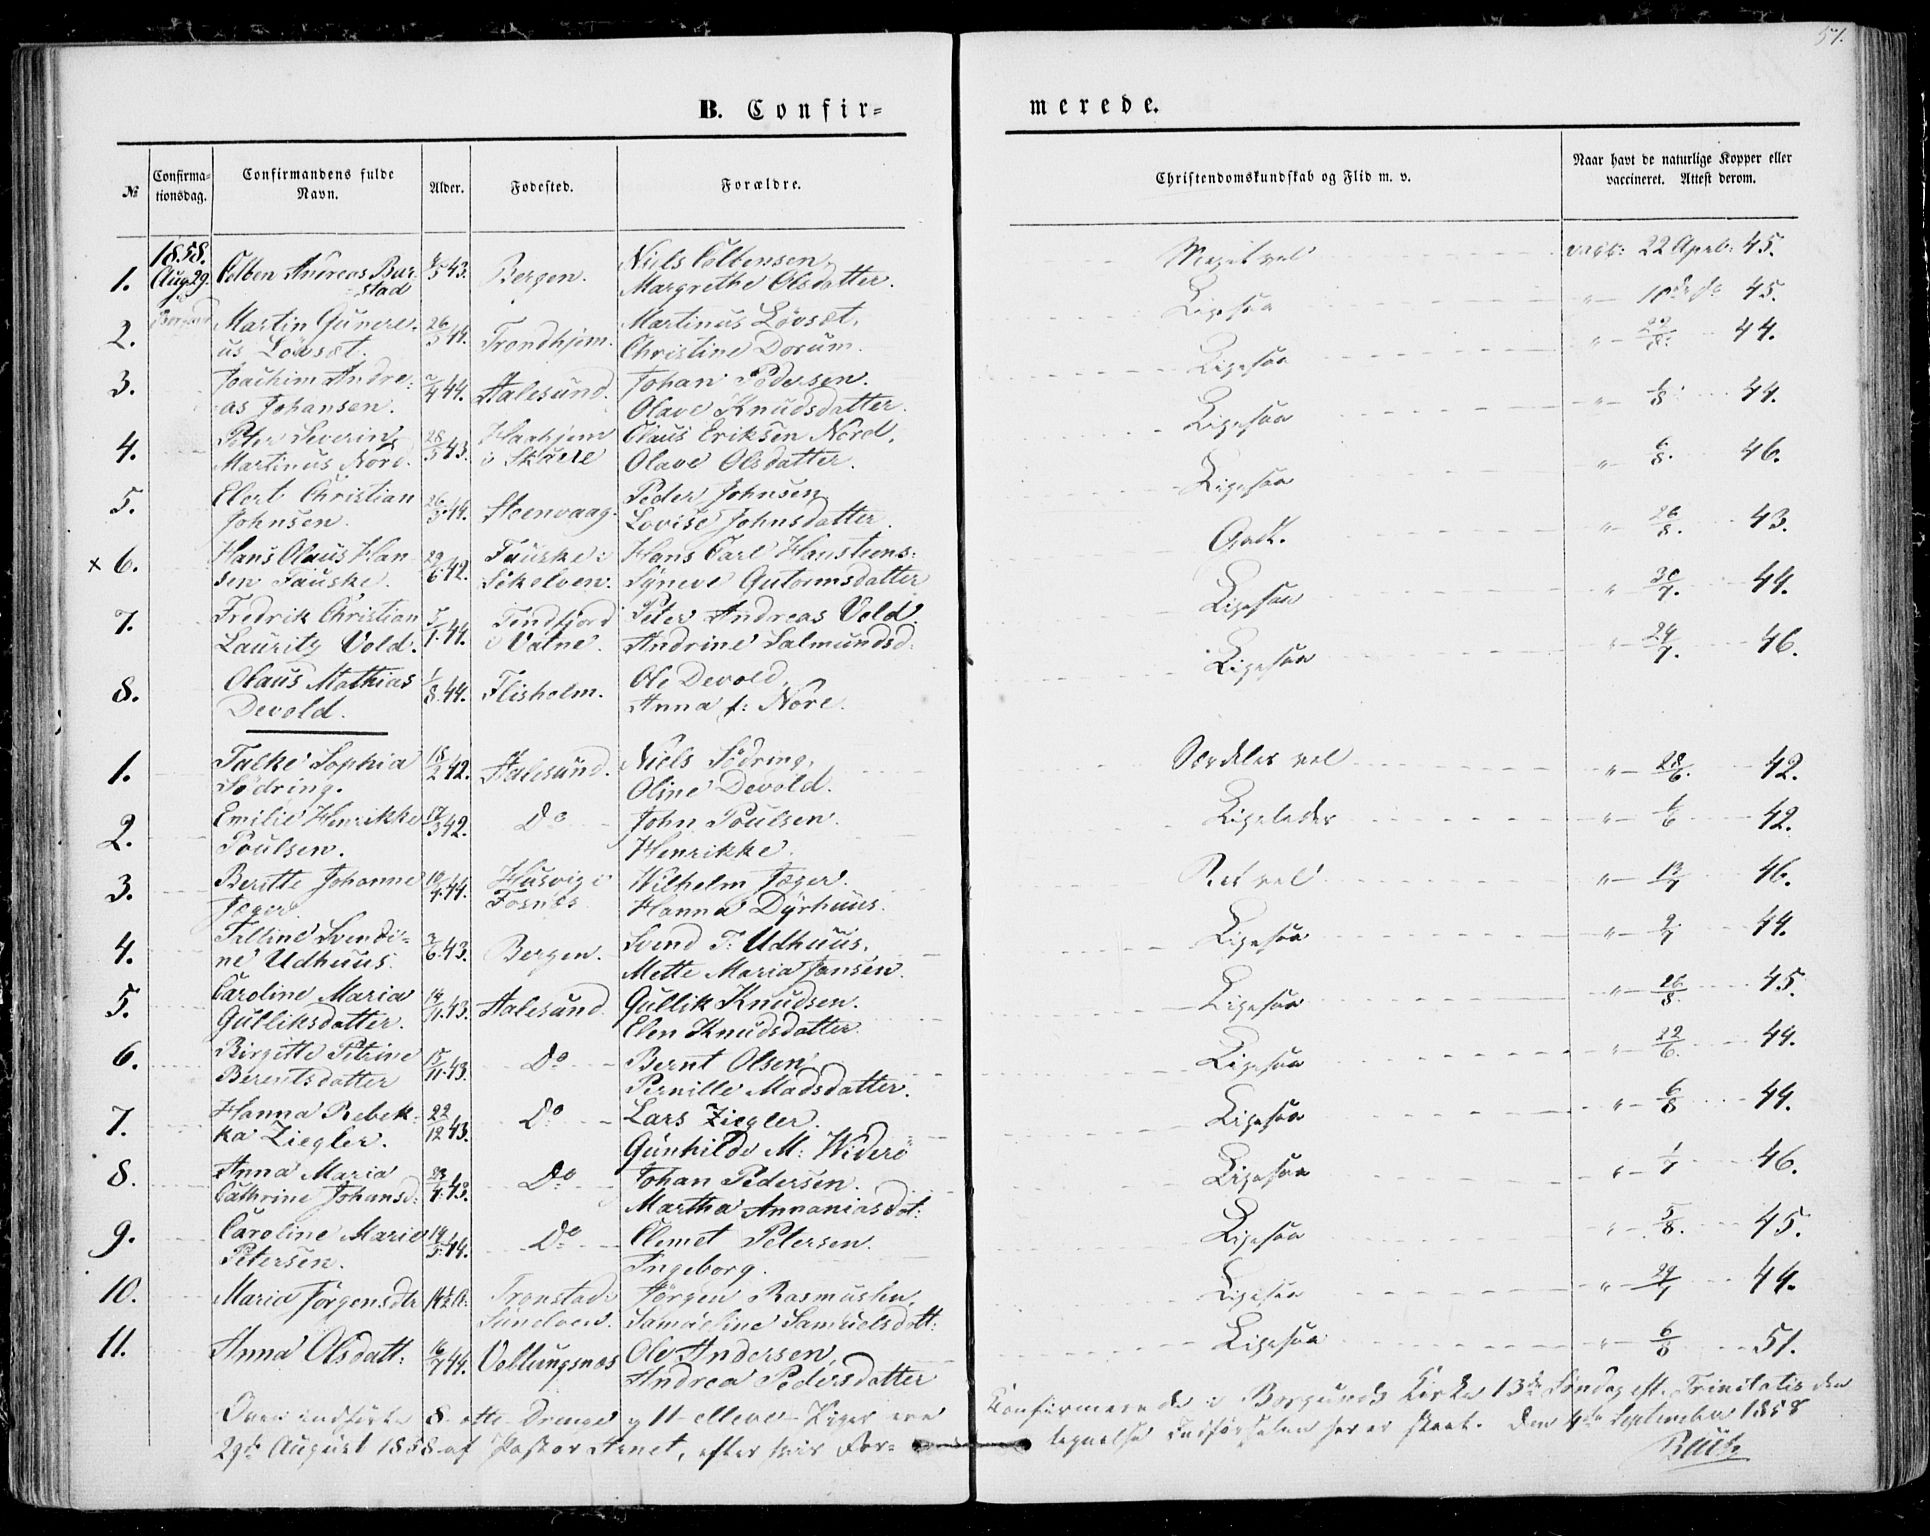 57.
B. Confir=
merede.
№
Confirma-
tionsdag.
Confirmandens fulde
Navn.
Alder.
Fødested.
Forældre.
Christendomskundskab og Flid m. v.
Naar havt de naturlige Kopper eller
vaccineret. Attest derom.
1858.
1. Aug. 29. Colben Andreas Bur-
stad 43. Bergen. Niels Colbensen,
Margrethe Olsdatter. Meget vel 22 April 45.
2. Martin Gunere-
us Lövset. 26/3 44. Trondhjem. Martinus Lövset,
Christine Dorum. Ligesaa 45.
3. Joachim Andre-
as Johansen. 44. Aalesund. Johan Pedersen.
Olave Knudsdatter. Ligesaa 44.
4. Peter Severin
Martinus Nord. 28/5 43. i Skuele Claus Eriksen Nord,
Olave Olsdatter. Ligesaa 44.
5. Elert Christian
Johnsen. 26/3 44. Steenvaag. Peder Johnsen
Lovise Johnsdatter. Ligesaa 6/8. 46.
× 6. Hans Olaus Han-
sen Fauske. 29/6 42. Fauske i
Sökelven. Hans Carl Hanstens:
Syneve Gutormsdatter Godt. 26/8. 43.
7. Fredrik Christian
Lauritz Vold. 44. Tendfjord
i Vatne. Peter Andreas Vold.
Andrine Salmundsd. Ligesaa 30/7. 44.
8. Olaus Mathias
Devold. 1/8 44. Flisholm. Ole Devold,
Anna f: Nöre. Ligesaa 24/7. 46.
1. Falke Sophia
Södring. 18/2 42. Aalesund. Niels Södring,
Oline Devold. Særdeles vel 28/6. 42.
2. Emilie Henrikke
Poulsen. 42. Do John Poulsen.
Henrikke. Ligeledes 42.
3. Beritte Johanne
Jæger. 44. Husvig i
Fosnæs. Wilhelm Jæger.
Hanna Dyrhuus. Ret vel 46.
4. Svendi-
ne Udhuus. 43. Bergen. Svend T: Udhuus,
Mette Maria Jansen. Ligesaa 44.
5. Caroline Maria
Gulliksdatter. 43. Aalesund Gullik Knudsen.
Elen Knudsdatter. Ligesaa 26/8. 45.
6. Birgitte Petrine
Berentsdatter 15/11 43. Do Bernt Olsen,
Pernille Madsdatter. Ligesaa 22/6. 44.
7. Hanna Rebek-
ka Ziegler. 22/12 43. Do Lars Ziegler.
Gunhilde M: Widerö Ligesaa 6/8 44.
8. Anna Maria
Cathrine Johansd: 43. Do Johan Pedersen.
Martha Annaniasdat: Ligesaa 1/7 46.
9. Caroline Marie
Petersen. 14/5 44. Do Clemet Petersen.
Ingeborg. Ligesaa 5/8. 45.
10. Maria Jörgensdtr 14½ A: Tronstad i
Sundven. Jörgen Rasmussen,
Samueline Samuelsdatt: Ligesaa 44.
11. Anna Olsdatt: 16/7 44. Veblungsnæs Ole Andersen,
Andrea Pedersdatter Ligesaa 6/8 51.
Oven indförte 8 otte Drenge og 11 elleve Piger ere Confirmerede i Borgunds Kirke 13de Söndag eft. Trinitatis den
29de August 1858 af Pastor Arnet, efter hvis For- tegnelse Indförselen her er skeet. Den 4de September 1858